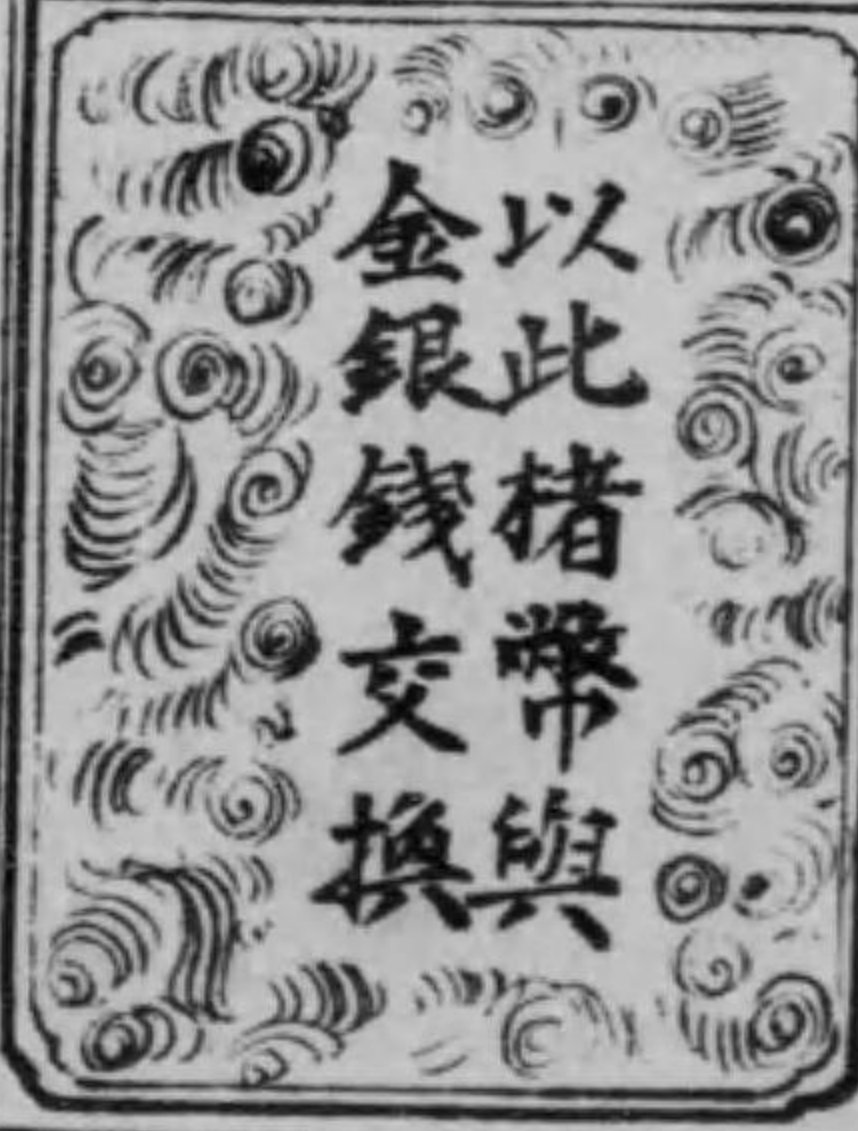 以此楮幣與
金銀錢交換